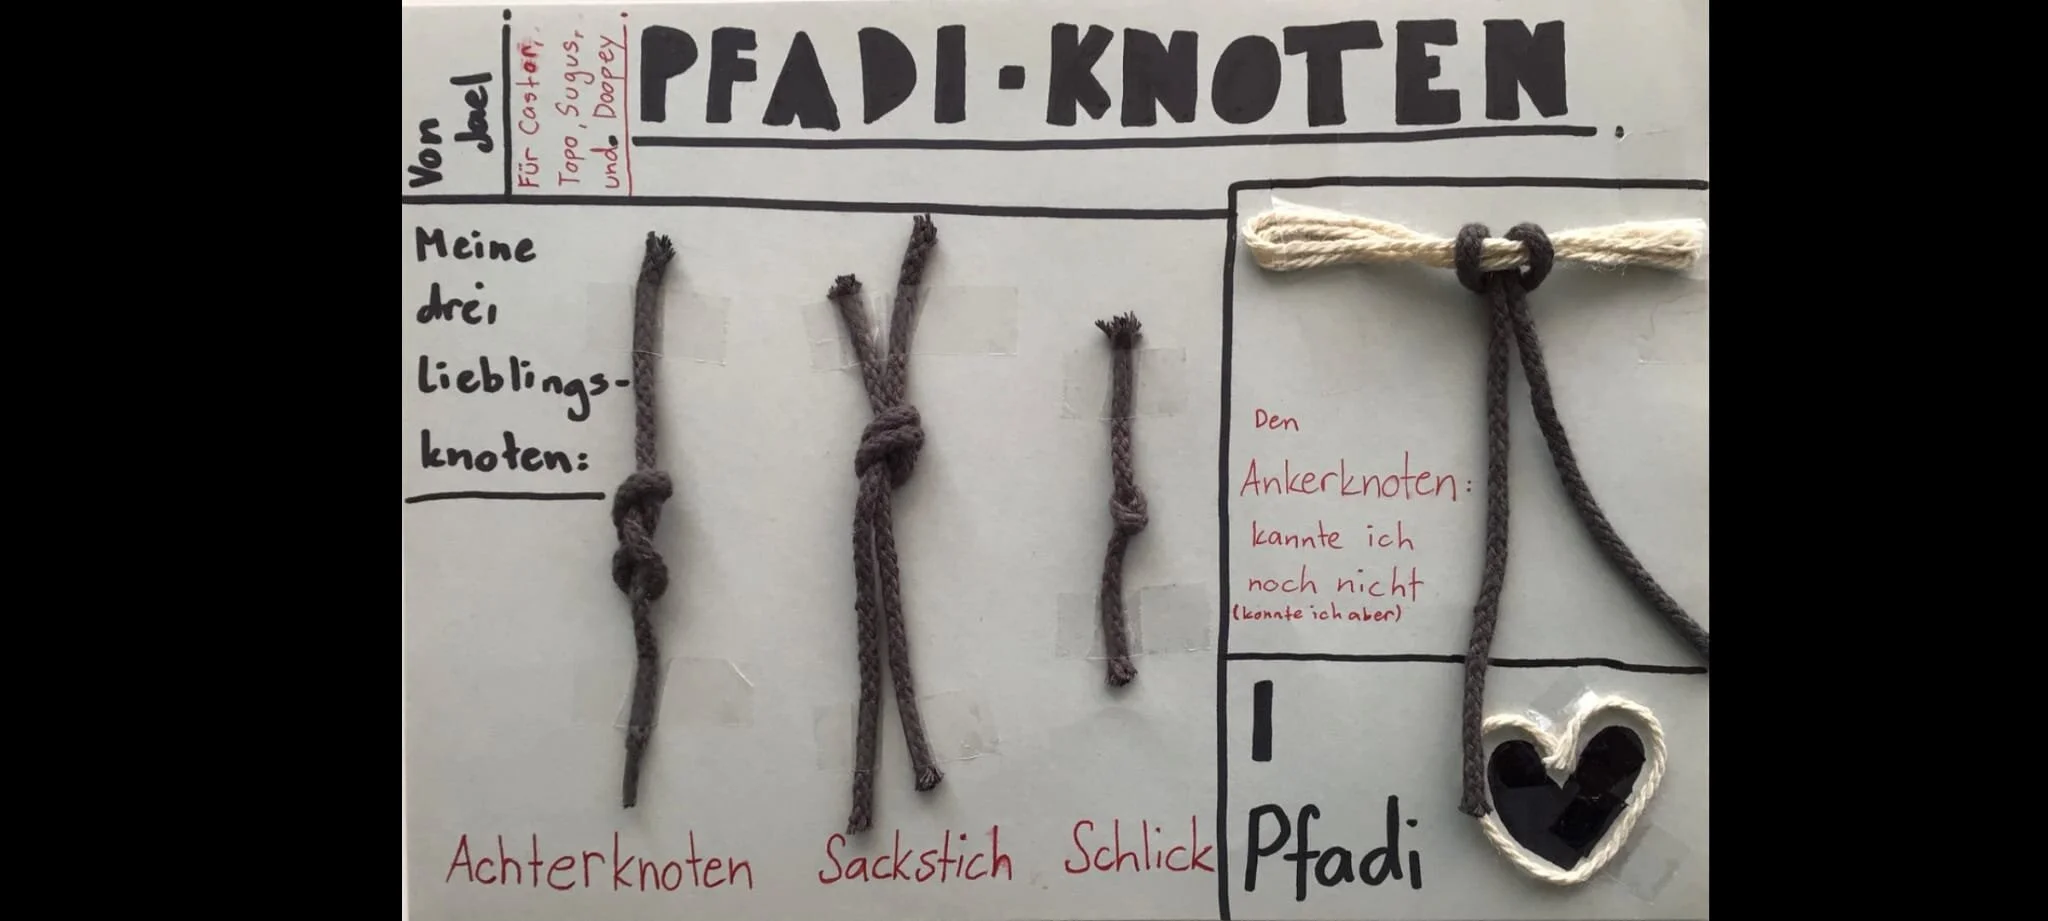 Von
Jael
Für Castor,
Topo, Sugus,
und Doopey
PFADI-KNOTEN
Meine
drei
Lieblings-
knoten:
Achterknoten
Sackstich
Schlick
Den
Ankerknoten:
kannte ich
noch nicht
(konnte ich aber)
I
Pfadi